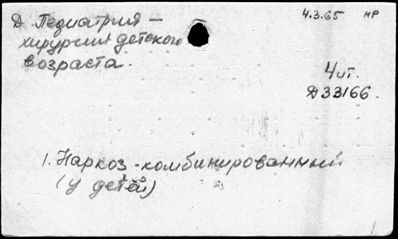 Д Педиатрия —
хирургия детского
возраста.
4.3.65 нр
4 ит.
Д33166.
1. Наркоз - комбинированный
(у детей)